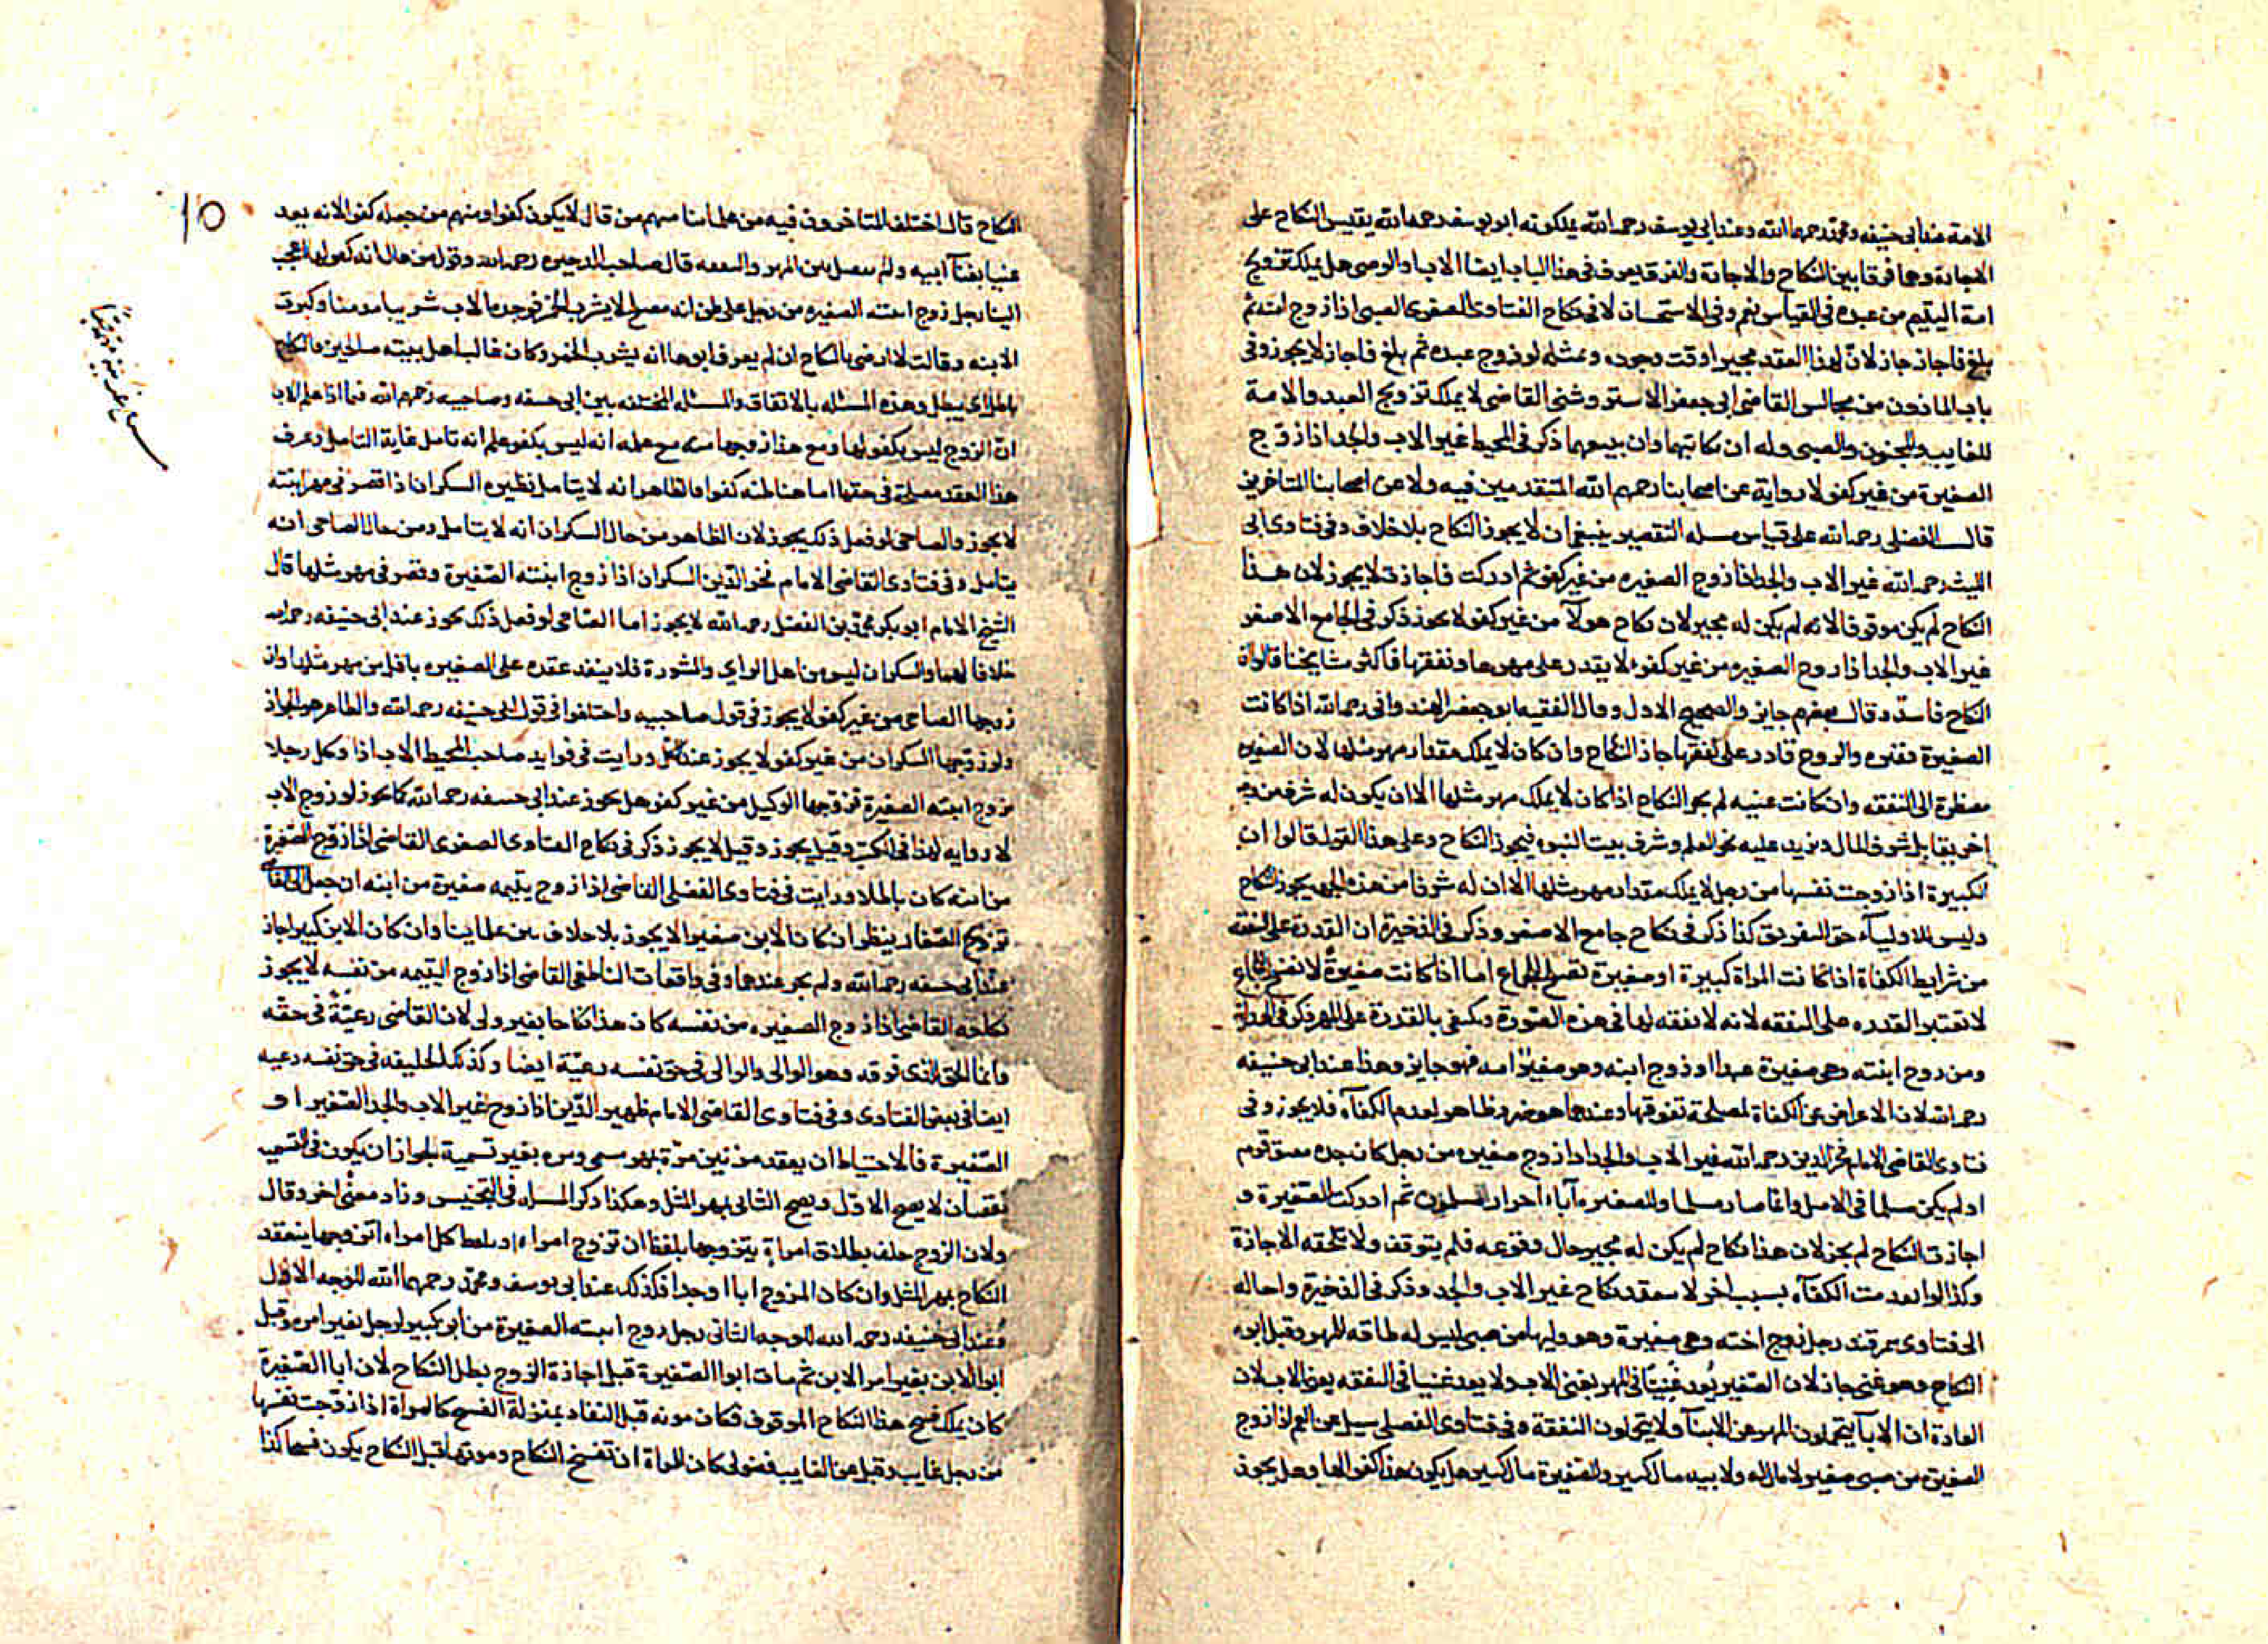 الامة عند ابى حنيفه ومحمد رحمهما الله وعند ابى يوسف رحمه الله يملكونه ابو يوسف رحمه الله يقيس النكاح على
الاجارة وهما فرقا بين النكاح والاجارة والفرق يعرف فى هذا الباب ايضا الاب او الوصى هل يملك تزويج
امة اليتيم من عبده فى القياس نعم وفى الاستحسان لا فى نكاح الفتاوى الصغرى الصبى اذا زوج امته ثم
بلغ فاجاز جاز لان لهذا العقد مجيرا وقت وجوده وبمثله لو زوج عبده ثم بلغ فاجاز لا يجوز وفى
باب الماذون من مجالس القاضى ابى جعفر الاستروشنى القاضى لا يملك تزويج العبد والامة
للغايب والمجنون والصبى وله ان يكاتبهما وان يبيعهما ذكر فى المحيط غير الاب والجد اذا زوج
الصغيرة من غير كفو لا رواية عن اصحابنا رحمهم الله المتقدمين فيه ولا عن اصحابنا المتاخرين
قال الفضلى رحمه الله على قياس مسله التقصير ينبغى ان لا يجوز النكاح بلا خلاف وفى فتاوى ابى
الليث رحمه الله غير الاب والجد اذا زوج الصغيره من غير كفو ثم ادركت فاجازت لا يجوز لان هذا
النكاح لم يكن موقوفا لانه لم يكن له مجيز لان نكاح هولآ من غير كفو لا يجوز ذكر فى الجامع الاصغر
غير الاب والجد اذا زوج الصغيره من غير كفو لا يقدر على مهرها ونفقتها فاكثر مشايخنا قالوا ان
النكاح فاسد وقال بعضهم جايز والصحيح الاول وقال الفقيه ابو جعفر الهندوانى رحمه الله اذا كانت
الصغيرة فقيره والزوج قادر على نفقتها جاز النكاح وان كان لا يملك مقدار مهر مثلها لان الصغيره
مضطرة الى النفقه وان كانت غنيه لم يجز النكاح اذا كان لا يملك مهر مثلها الا ان يكون له شرف من وجه
اخر يقابل شرف المال ويزيد عليه نحو العلم وشرف بيت النبوه فيجوز النكاح وعلى هذا القول قالوا ان
الكبيرة اذا زوجت نفسها من رجل لا يملك مقدار مهر مثلها الا ان له شرفا من هذه الجهه يجوز النكاح
وليس للاوليآء حق التفريق كذا ذكر فى نكاح جامع الاصغر وذكر فى الذخيرة ان القدرة على النفقه
من شرايط الكفاة اذا كانت المراة كبيرة او صغيرة تصلح للجماع اما اذا كانت صغيرة لا تصلح للجماع
لا تعتبر القدره على النفقه لانه لا نفقه لها فى هذه الصورة ويكتفى بالقدرة على المهر ذكر فى الهداية
ومن زوج ابنته وهى صغيرة عبدا او زوج ابنه وهو صغير امه فهو جايز وهذا عند ابى حنيفه
رحمه الله لان الاعراض عن الكفاة لمصلحة تفوقها وعندهما هو ضرر ظاهر لعدم الكفآه فلا يجوز وفى
فتاوى القاضى الامام فخر الدين رحمه الله غير الاب والجد اذا زوج صغيره من رجل كان جده معتق قوم
او لم يكن مسلما فى الاصل وانما صار مسلما وللصغيره آباء احرار مسلمون ثم ادركت الصغيرة و
اجازت النكاح لم يجز لان هذا نكاح لم يكن له مجيز حال وقوعه فلم يتوقف ولا تلحقه الاجازة
وكذا لو انعدمت الكفآه بسبب اخر لا ينعقد نكاح غير الاب والجد وذكر فى الذخيرة واحاله
الى فتاوى سمرقند رجل زوج اخته وهى صغيرة وهو وليها من صبى ليس له طاقه المهر وقبل ابوه
النكاح وهو غنى جاز لان الصغير يُعد غنِيًا فى المهر بغنى الاب ولا يعد غنيا فى النفقه بغنى الاب لان
العادة ان الابآ يتحملون المهر عن الابنآ ولا يتحملون النفقة وفى فتاوى الفضلى سيل عن العم اذا زوج
الصغيرة من صبى صغير لا مال له ولابيه مال كثير وللصغيرة مال كثير هل يكون هذا كفوا لها وهل يجوز
النكاح قال اختلف المتاخرون فيه من علمائنا منهم من قال لا يكون كفوا ومنهم من جعله كفوا لانه يعد
غنيا بغنآ ابيه ولم يفصل بين المهر والنفقه قال صاحب المحيط رحمه الله وقول من قال انه كفو لها اعجب
الينا رجل زوج ابنته الصغيره من رجل على ظن انه مصلح لا يشرب الخمر فوجده الاب شريبا مدمنا وكبرت
الابنه وقالت لا ارضى بالنكاح ان لم يعرف ابوها انه يشرب الخمر وكان غالب اهل بيته صالحين فالنكاح
باطل اى يبطل وهذه المسئله بالاتفاق والمسئله المختلفه بين ابى حنيفه وصاحبيه رحمهم الله فيما اذا علم الاب
ان الزوج ليس بكفو لها ومع هذا زوجها منه مع علمه انه ليس بكفو علم انه تامل غاية التامل وعرف
هذا العقد مصلحة فى حقها اما هنا ظنه كفوا فالظاهر انه لا يتامل نظيره السكران اذا قصر فى مهر ابنته
لا يجوز والصاحى لو فعل ذلك يجوز لان الظاهر من حال السكران انه لا يتامل ومن حال الصاحى انه
يتامل وفى فتاوى القاضى الامام فخر الدين السكران اذا زوج ابنته الصغيرة وقصر فى مهر مثلها قال
الشيخ الامام ابو بكر محمد بن الفضل رحمه الله لا يجوز اما الصاحى لو فعل ذلك يجوز عند ابى حنيفه رحمه الله
خلافا لهما والسكران ليس من اهل الراى والمشورة فلا ينفذ عقده على الصغيره باقل من مهر مثلها وان
زوجها الصاحى من غير كفو لا يجوز فى قول صاحبيه واختلفوا فى قول ابى حنيفه رحمه الله والظاهر هو الجواز
ولو زوجها السكران من غير كفو لا يجوز عند الكل ورايت فى فوايد صاحب المحيط الاب اذا وكل رجلا
بزوج ابنته الصغيرة فزوجها الوكيل من غير كفو هل يجوز عند ابى حنيفه رحمه الله كما يجوز لو زوج الاب
لا روايه لهذا فى الكتب وقيل يجوز وقيل لا يجوز ذكر فى نكاح الفتاوى الصغرى القاضى اذا زوج الصغيرة
من ابنه كان باطلا ورايت فى فتاوى الفضلى القاضى اذا زوج يتيمه صغيرة من ابنه ان جعل اليه
تزويج الصغار ينظر ان كان الابن صغيرا لا يجوز بلا خلاف بين علماينا وان كان الابن كبيرا جاز
عند ابى حنيفه رحمه الله ولم يجز عندهما وفى واقعات الناطفى القاضى اذا زوج اليتيمه من نفسه لا يجوز
نكاحه القاضى اذا زوج الصغيره من نفسه كان هذا نكاحا بغير ولى لان القاضى رعيّة فى حقه
وانما الحق للذى فوقه وهو الوالى والوالى فى حق نفسه رعيّة ايضا وكذلك الخليفه فى حق نفسه رعيه
ايضا فى بعض الفتاوى وفى فتاوى القاضى الامام ظهير الدّين اذا زوج غير الاب والجد الصغير او
الصّغيرة فالاحتياط ان يعقد مرتين مرّة بمهر مسمى ومره بغير تسمية لجواز ان يكون فى التسميه
نقصان لا يصح الاول ويصح الثانى بمهر المثل وهكذا ذكر المسله فى التجنيس وزاد معنى اخر وقال
ولان الزوج حلف بطلاق امراة يتزوجها بلفظ ان تزوج امراه او بلفظ كل امراه اتزوجها ينعقد
النكاح بمهر المثل وان كان المزوج ابا او جدا فكذلك عند ابى يوسف ومحمد رحمهما الله للوجه الاول
وعند ابى حنيفه رحمه الله للوجه الثانى رجل زوج ابنته الصغيرة من ابن كبير لرجل بغير امره وقبل
ابو الابن بغير امر الابن ثم مات ابوا الصّغيرة قبل اجازة الزوج بطل النكاح لان ابا الصّغيرة
كان يملك فسخ هذا النكاح الموقوف فكان موته قبل النفاذ بمنزلة الفسخ كالمراة اذا زوجت نفسها
من رجل غايب وقبل عن الغايب فضولى كان للمراة ان تفسخ النكاح وموتها قبل النكاح يكون فسخا كذا